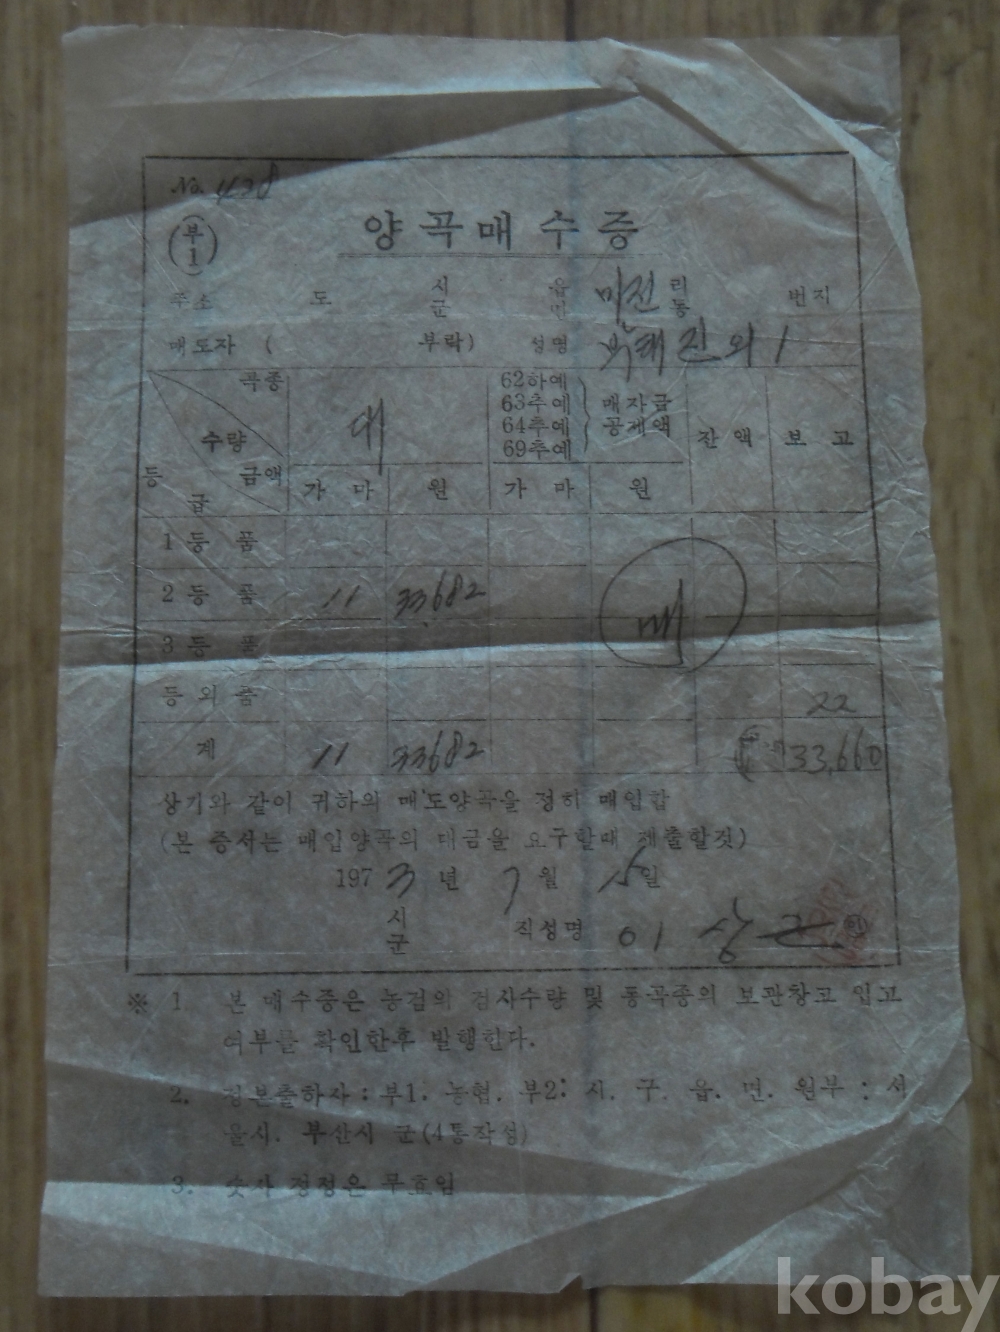 No. 428
부 1
양곡매수증
주소 도 시 군 읍 면 미진 리 동 번지
매도자 ( 부락) 성명 진 외 1
곡종
수량
금액
등급
대
62하예
63추예
64추예
69추예
매자금
공제액
잔액
보고
가마 원 가마 원
1등품
2등품 11 33,682
매
3등품
등외품 22
계 11 33682 33,660
상기와 같이 귀하의 매도양곡을 정히 매입함
(본 증서는 매입양곡의 대금을 요구할때 제출할것)
1973년 7월 5일
시
군
직성명 이 상
※ 1 본 매수증은 농검의 검사수량 및 동곡종의 보관창고 입고
여부를 확인한후 발행한다.
2. 정본출하자 : 부1. 농협. 부2: 시. 구. 읍. 면. 원부 : 서
울시. 부산시 군(4통작성)
3. 숫자 정정은 무효임
kobay